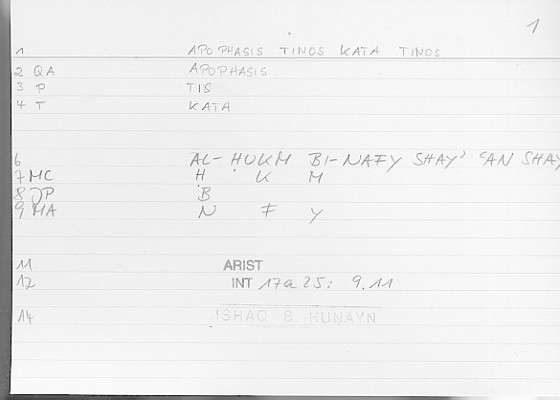 1
1 APOPHASIS TINOS KATA TINOS
2 QA APOPHASIS
3 P TIS
4 T KATA
6 AL-ḤUKM BI-NAFY SHAY' ʿAN SHAY
7 MC Ḥ K M
8 JP B
9 MA N F Y
11 ARIST
12 INT 17a25: 9.11
14 ISHAQ B. HUNAYN